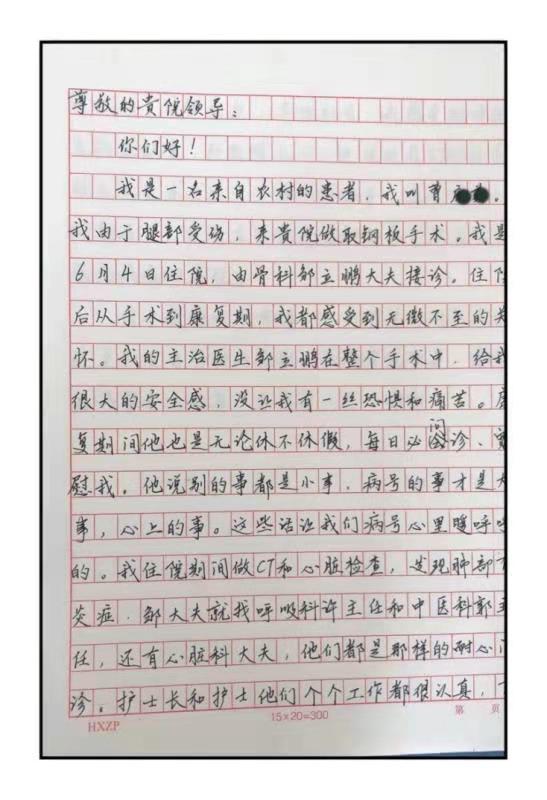 尊敬的貴院领导：
你们好！
我是一名来自农村的患者，我叫曹
我由于腿部受伤，来貴院做取钢板手术。我是
6月4日住院，由骨科邹立鹏大夫接诊。住院
后从手术到康复期，我都感受到无微不至的关
怀。我的主治医生邹立鹏在整个手术中，给我
很大的安全感，没让我有一丝恐惧和痛苦。康
复期间他也是无论休不休假，每日必问诊、
慰我。他说别的事都是小事，病号的事才是大
事，心上的事。这些话让我们病号心里暖呼呼
的。我住院期间做CT和心脏检查，发现肺部
炎症，邹大夫就找呼吸科许主任和中医科郭主
任，还有心脏科大夫，他们都是那样的耐心
诊。护士长和护士他们个个工作都很认真，
HXZP 15×20=300 第 页